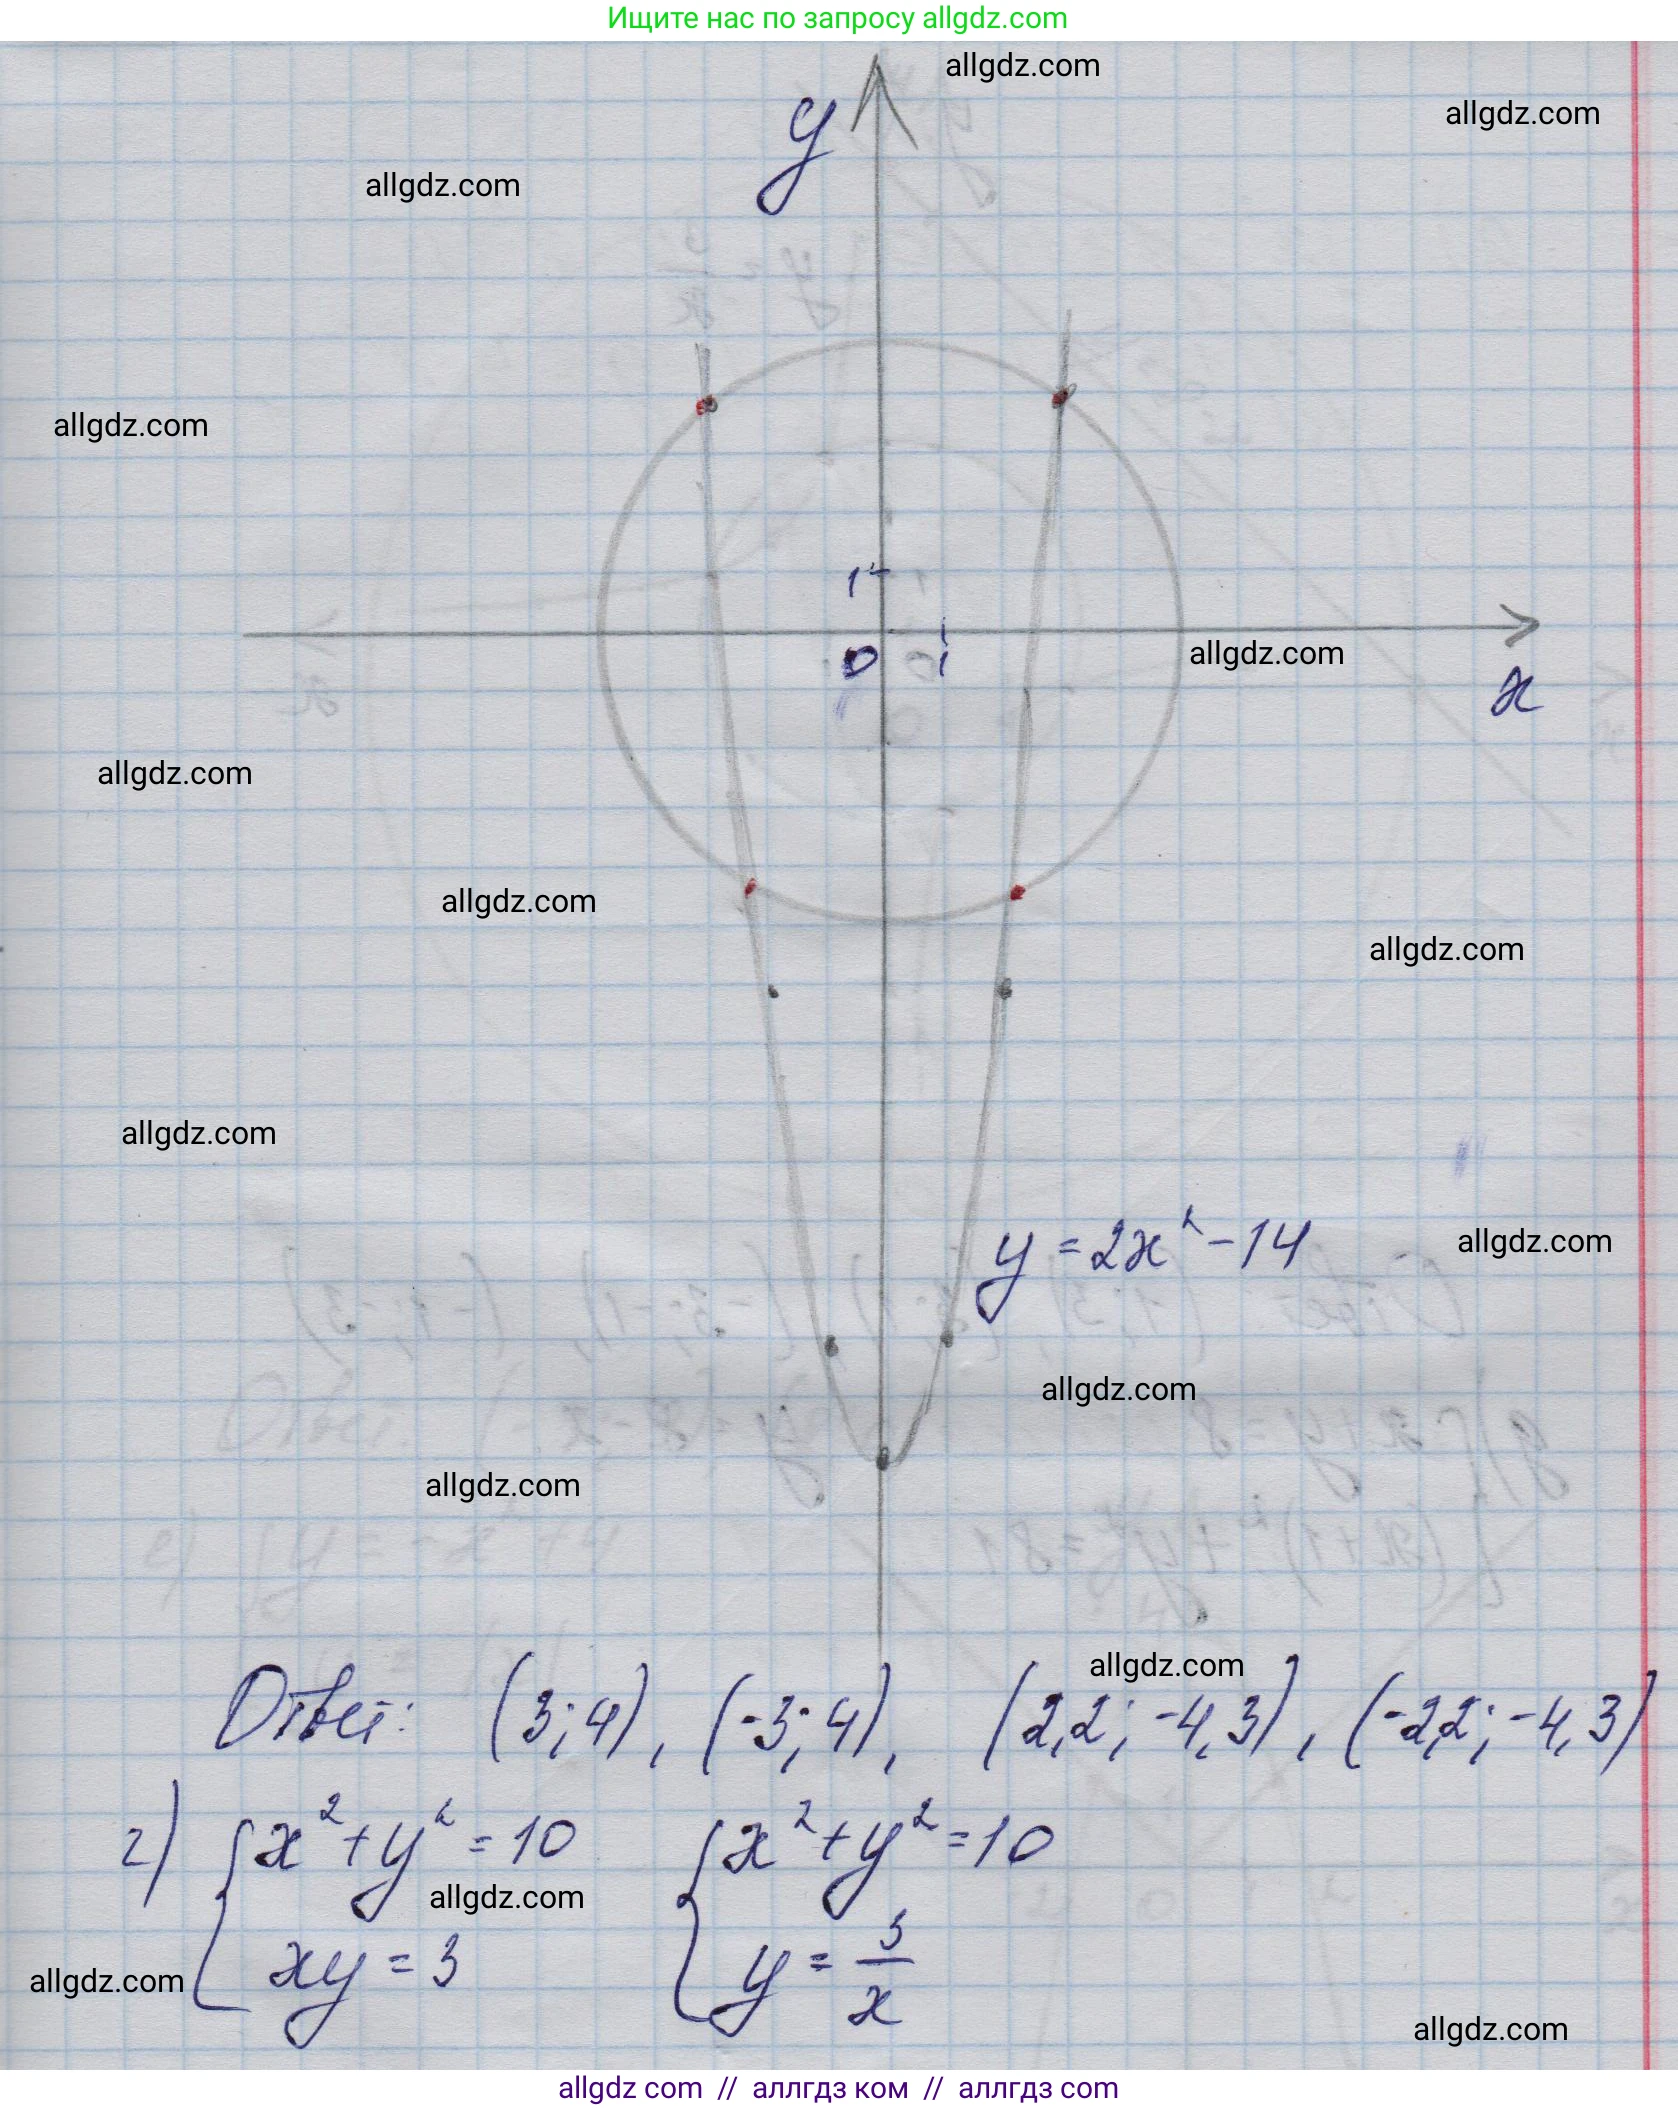 Ищите нас по запросу allgdz.com
allgdz.com
y
allgdz.com
allgdz.com
allgdz.com
1
0 1
allgdz.com
x
allgdz.com
allgdz.com
allgdz.com
allgdz.com
y = 2x² - 14
allgdz.com
allgdz.com
allgdz.com
allgdz.com
Ответ: (3; 4), (-3; 4), (2,2; -4,3), (-2,2; -4,3)
г) { x² + y² = 10 { x² + y² = 10
allgdz.com
xy = 3 y = 3/x
allgdz.com
allgdz.com
allgdz com // аллгдз ком // аллгдз com